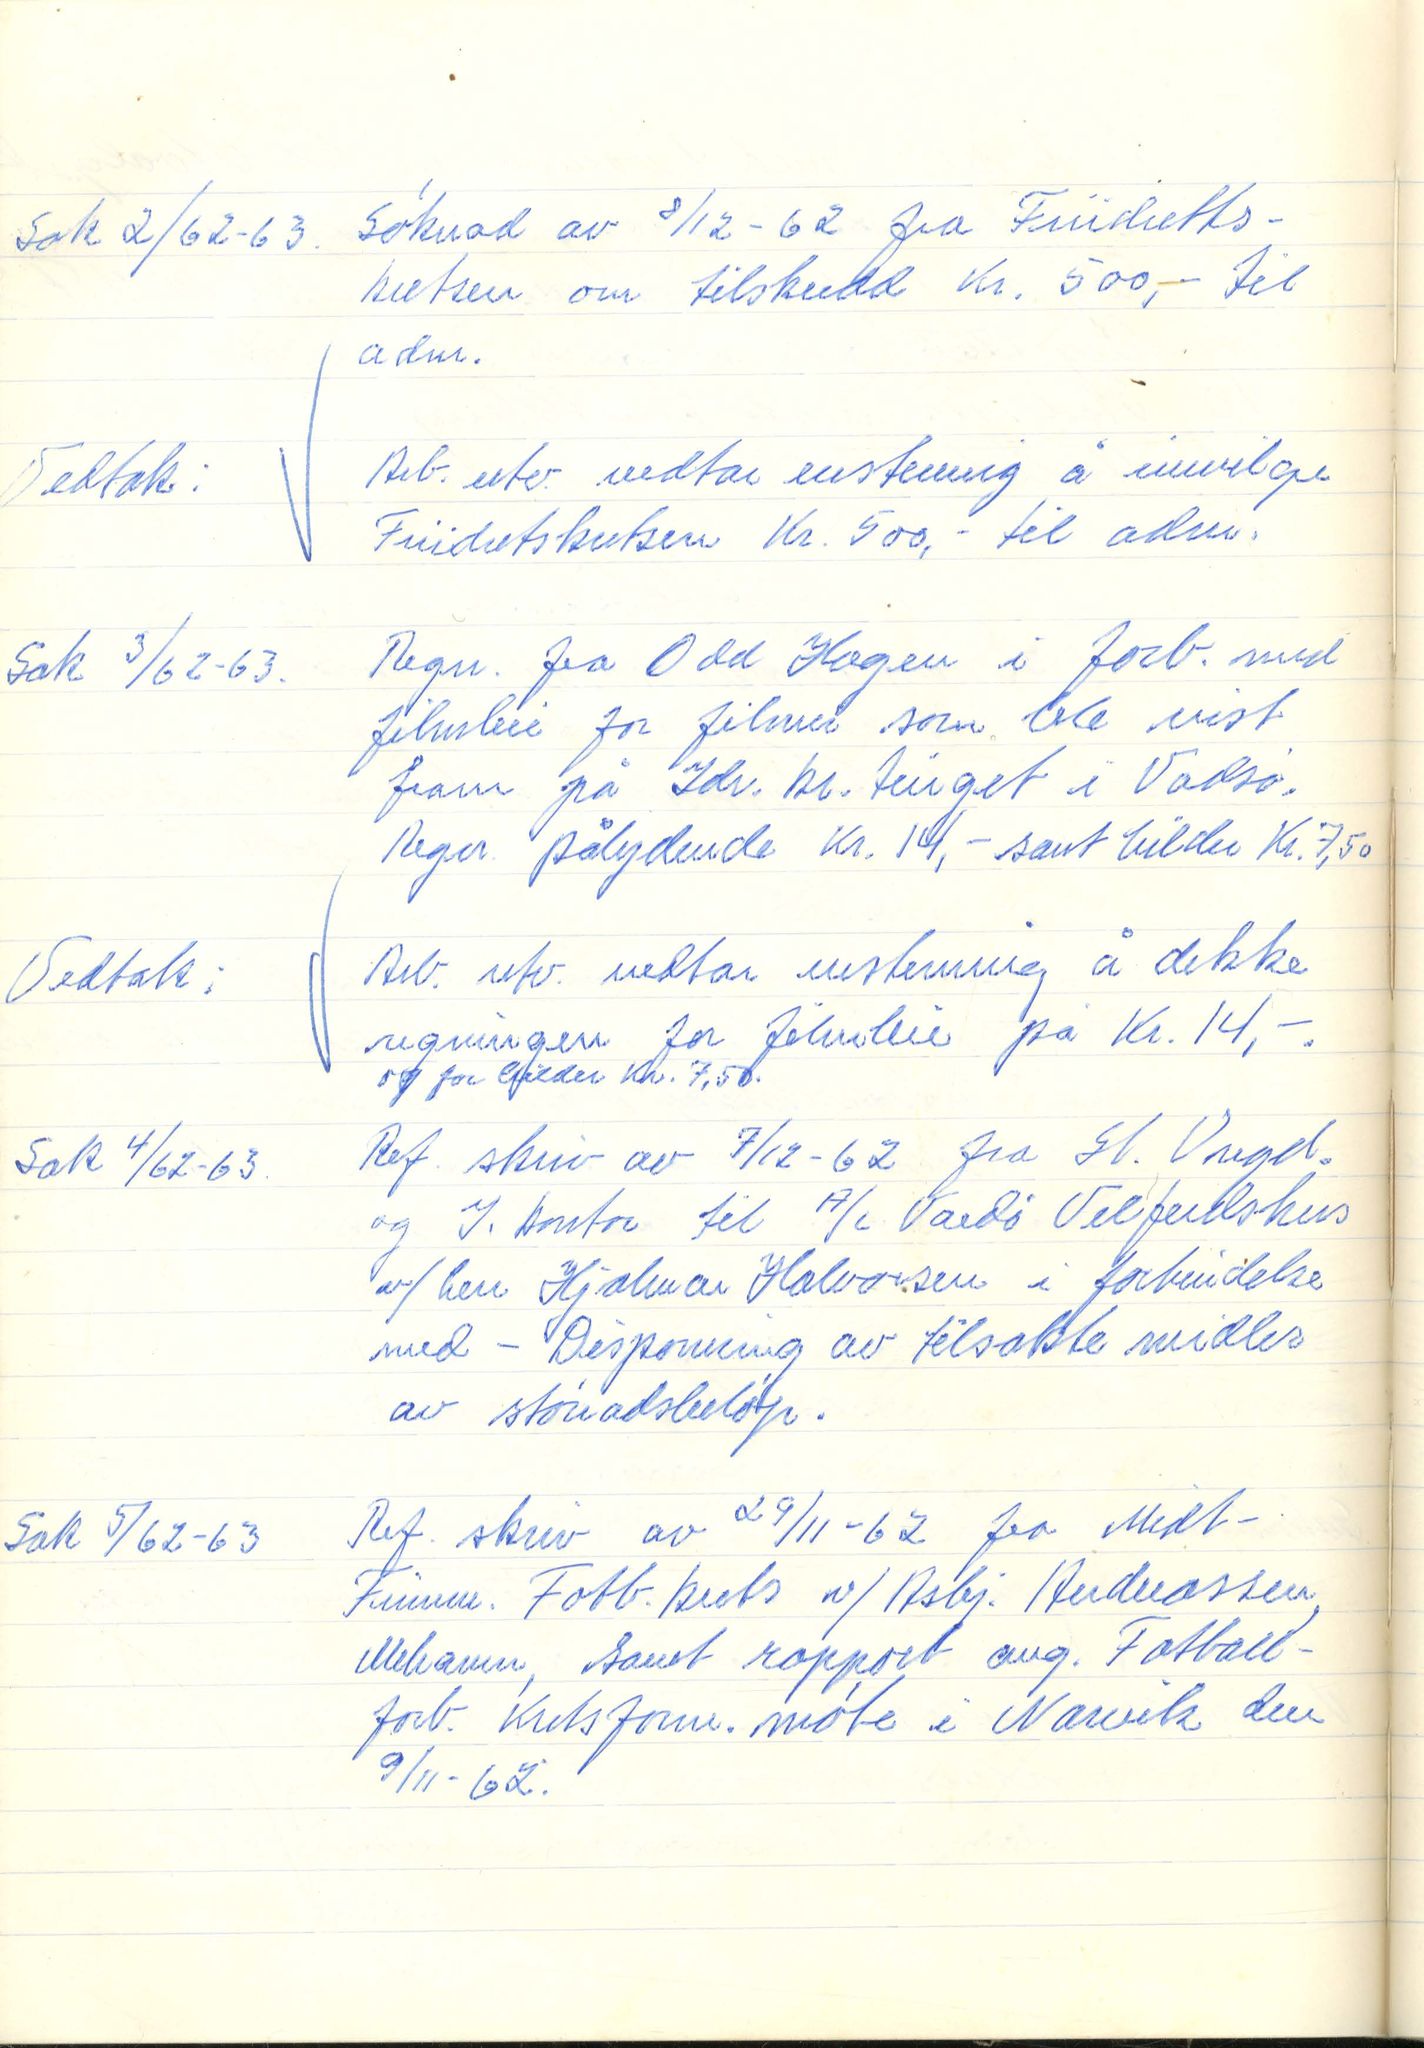 Sak 2/62-63. Söknad av 8/12-62 fra Friidretts-
kretsen om tilskudd Kr. 500,- til
adm.
Vedtak: Arb. utv. vedtar enstemmig å innvilge
Friidretskretsen Kr. 500,- til adm.
Sak 3/62-63. Regn. fra Odd Hagen i forb. med
filmleie for filmer som ble vist
fram på Idr. kr. tinget i Vadsö.
Regn. pålydende Kr. 14,- samt bilder Kr. 7,50
Vedtak: Arb. utv. vedtar enstemmig å dekke
regningen for filmleie på Kr. 14,-.
og for bilder Kr. 7,50.
Sak 4/62-63. Ref. skriv av 7/12-62 fra St. Ungd.
og I. kontor til A/L Vardö Velferdshus
v/ herr Hjalmar Halvorsen i forbindelse
med - Disponering av tilsakte midler
av stönadsbelöp.
Sak 5/62-63 Ref. skriv av 29/11-62 fra Midt-
Finnm. Fotb. krets v/ Asbj. Andreassen,
Mehamn, samt rapport ang. Fotball-
forb. Kretsform. möte i Narvik den
9/11-62.